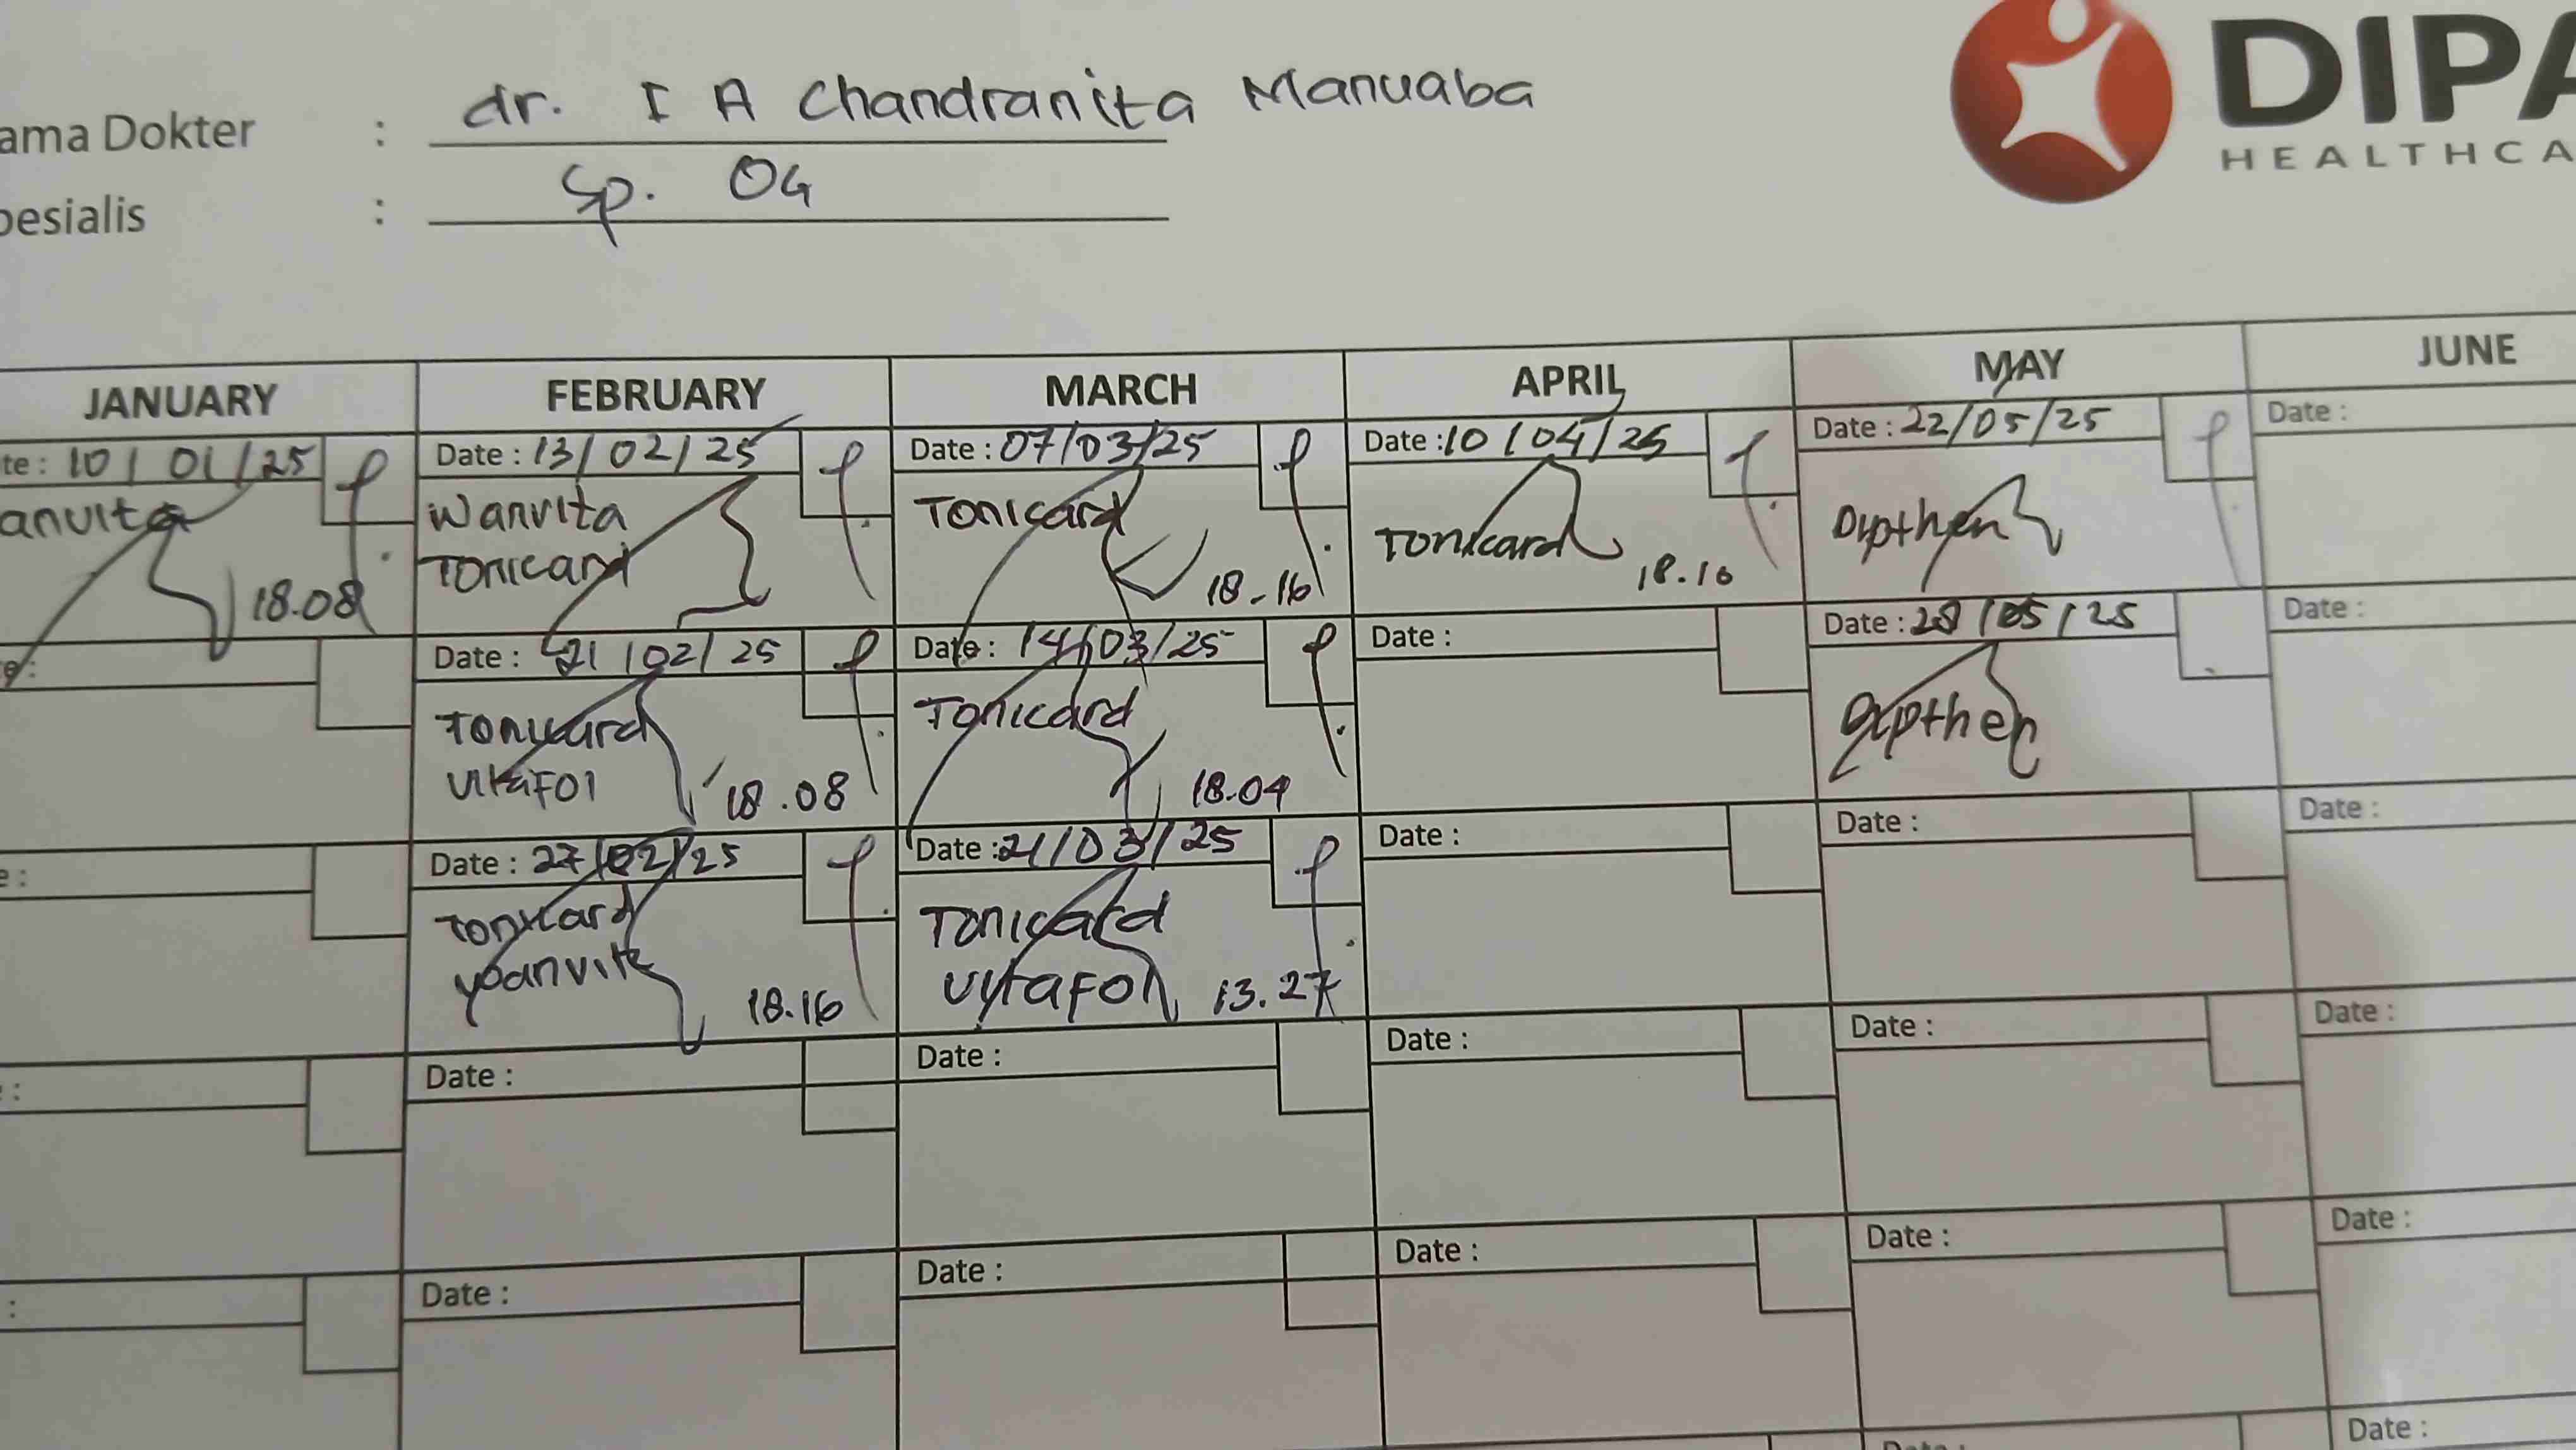 ama Dokter : dr. I A Chandranita Manuaba
pesialis : Sp. OG
DIPA
HEALTHCA
JANUARY FEBRUARY MARCH APRIL MAY JUNE
te : 10/01/25 Date : 13/02/25 Date : 07/03/25 Date : 10/04/25 Date : 22/05/25 Date :
anvita Wanvita Tonicard Tonicard Dypthen
Tonicard
18.08 18-16 18.10
e : Date : 21/02/25 Date : 14/03/25 Date : Date : 28/05/25 Date :
Tonicard Tonicard Dypthen
Vitafol 18.08 18.04
e : Date : 27/02/25 Date : 21/03/25 Date : Date : Date :
Tonicard Tonicard
18.16 Vytafol 13.27
e : Date : Date : Date : Date : Date :
: Date : Date : Date : Date : Date :
Date :